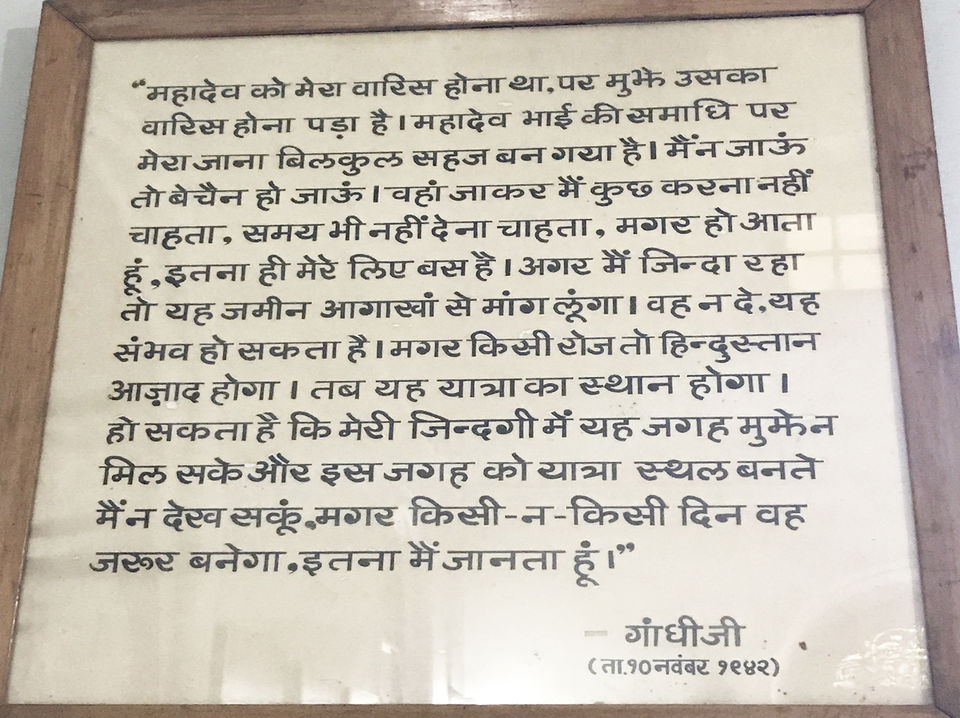 “महादेव को मेरा वारिस होना था, पर मुझे उसका
वारिस होना पड़ा है। महादेव भाई की समाधि पर
मेरा जाना बिलकुल सहज बन गया है। मैं न जाऊं
तो बेचैन हो जाऊं। वहां जाकर मैं कुछ करना नहीं
चाहता, समय भी नहीं देना चाहता, मगर हो आता
हूं, इतना ही मेरे लिए बस है। अगर मैं जिन्दा रहा
तो यह जमीन आगाखां से मांग लूंगा। वह न दे, यह
संभव हो सकता है। मगर किसी रोज तो हिन्दुस्तान
आज़ाद होगा। तब यह यात्रा का स्थान होगा।
हो सकता है कि मेरी जिन्दगी में यह जगह मुझे न
मिल सके और इस जगह को यात्रा स्थल बनते
मैं न देख सकूं, मगर किसी-न-किसी दिन वह
जरूर बनेगा, इतना मैं जानता हूं।”
— गांधीजी
(ता. १० नवंबर १९४२)